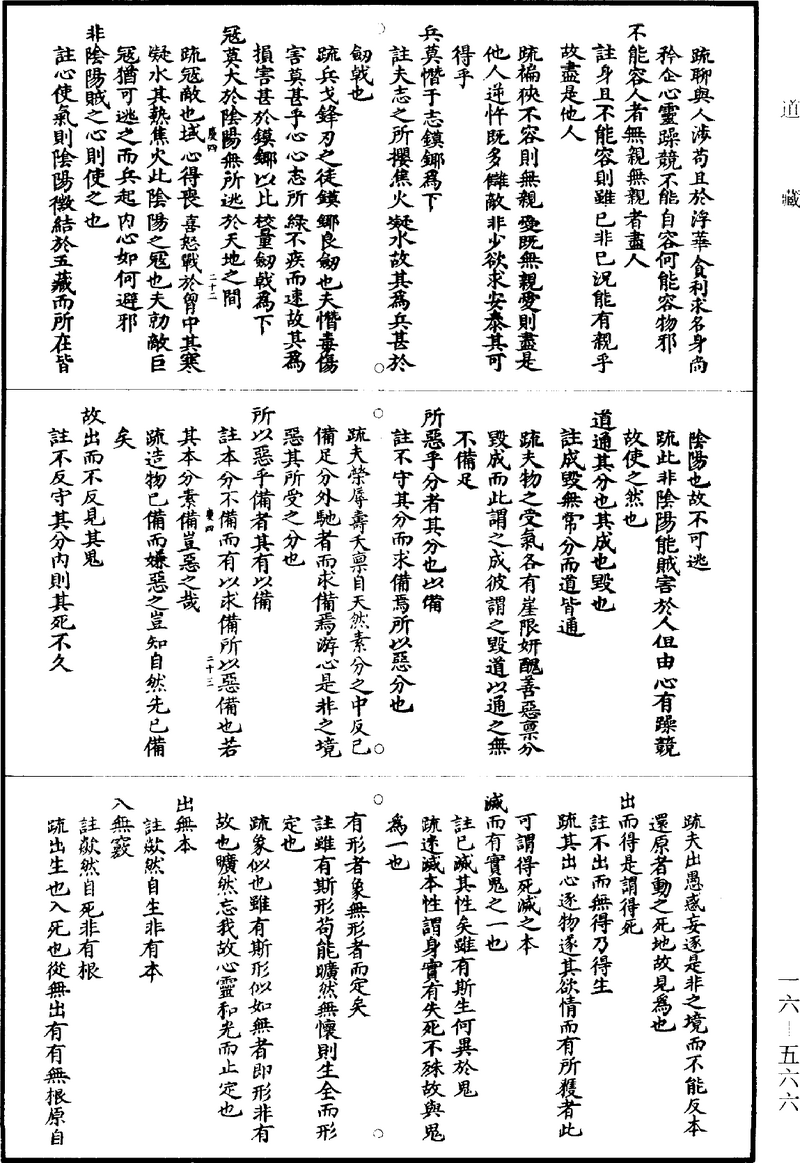 道藏
疏聊與人涉苟且於浮華貪利求名身尚
矜企心靈躁競不能自容何能容物邪
不能容人者無親無親者盡人
註身且不能容則雖己非己況能有親乎
故盡是他人
疏褊狹不容則無親愛既無親愛則盡是
他人逆忤既多讎敵非少欲求安泰其可
得乎
兵莫憯于志鏌鎁為下
註夫志之所攖焦火凝水故其為兵甚於
劒戟也
疏兵戈鋒刃之徒鏌鎁良劒也夫憯毒傷
害莫甚乎心心志所緣不疾而速故其為
損害甚於鏌鎁以此校量劒戟為下
慶四
二十二
寇莫大於陰陽無所逃於天地之間
疏寇敵也域心得喪喜怒戰於胷中其寒
凝水其熱焦火此陰陽之寇也夫勍敵巨
寇猶可逃之而兵起內心如何避邪
非陰陽賊之心則使之也
註心使氣則陰陽徵結於五藏而所在皆
陰陽也故不可逃
疏此非陰陽能賊害於人但由心有躁競
故使之然也
道通其分也其成也毀也
註成毀無常分而道皆通
疏夫物之受氣各有崖限妍醜善惡稟分
毀成而此謂之成彼謂之毀道以通之無
不備足
所惡乎分者其分也以備
註不守其分而求備焉所以惡分也
疏夫榮辱壽夭稟自天然素分之中反已
備足分外馳者而求備焉游心是非之境
惡其所受之分也
所以惡乎備者其有以備
註本分不備而有以求備所以惡備也若
慶四
二十三
其本分素備豈惡之哉
疏造物已備而嫌惡之豈知自然先已備
矣
故出而不反見其鬼
註不反守其分內則其死不久
疏夫出愚惑妄逐是非之境而不能反本
還原者動之死地故見為也
出而得是謂得死
註不出而無得乃得生
疏其出心逐物遂其欲情而有所獲者此
可謂得死滅之本
滅而有實鬼之一也
註已滅其性矣雖有斯生何異於鬼
疏迷滅本性謂身實有失死不殊故與鬼
為一也
有形者象無形者而定矣
註雖有斯形苟能曠然無懷則生全而形
定也
疏象似也雖有斯形似如無者即形非有
故也曠然忘我故心靈和光而止定也
出無本
註歘然自生非有本
入無竅
註歘然自死非有根
疏出生也入死也從無出有有無根原自
一六—五六六